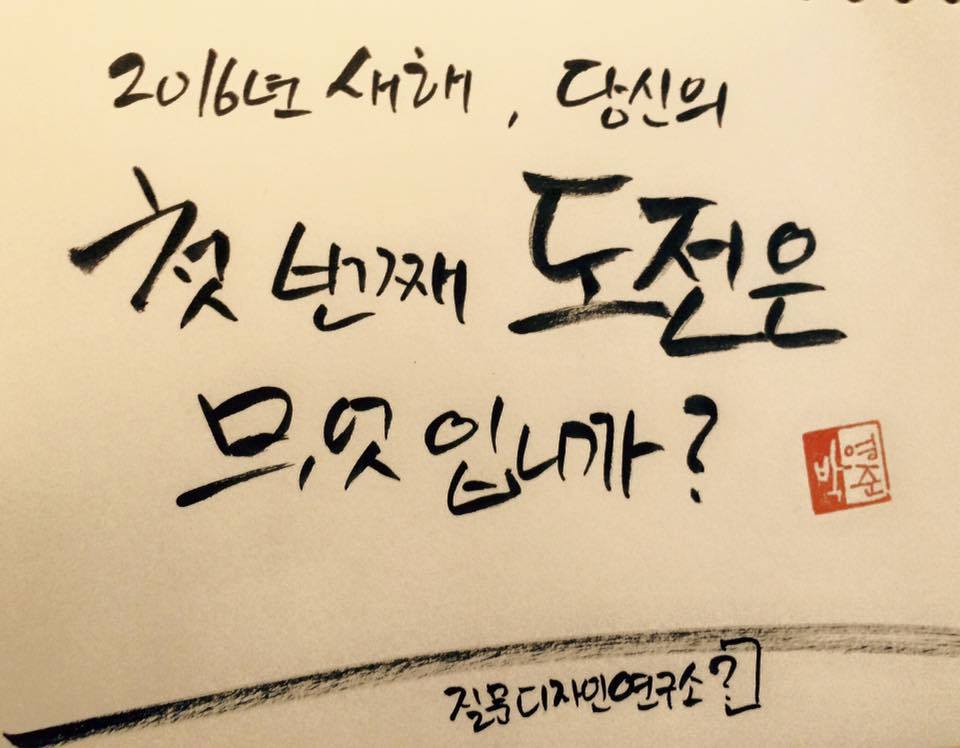 2016년 새해, 당신의
첫 번째 도전은
무엇입니까?
박영준
질문디자인연구소?